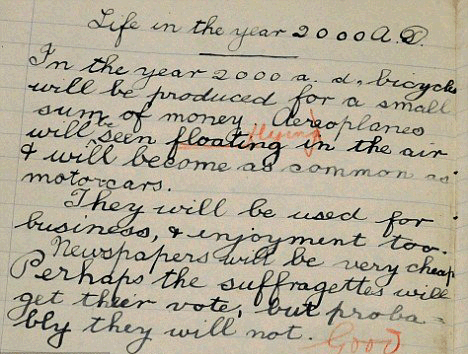 Life in the year 2000 A.D.
In the year 2000 a. d. bicycles
will be produced for a small
sum of money Aeroplanes
will ^be seen floating flying in the air
& will become as common as
motorcars.
They will be used for
business, & enjoyment too.
Newspapers will be very cheap
Perhaps the suffragettes will
get their vote, but proba-
bly they will not. Good